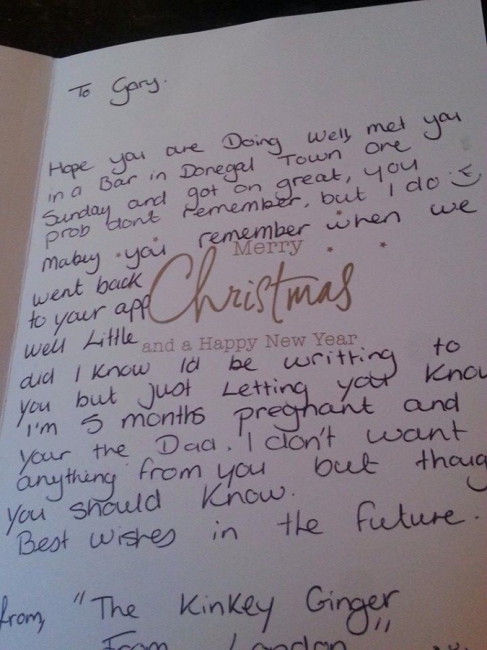 To Gary.
Hope you are Doing well, met you
in a Bar in Donegal Town one
Sunday and got on great, you
prob dont remember, but I do
mabey you remember when we
Merry
went back
Christmas
to your app
well Little
and a Happy New Year
did I know Id be writting to
you but just Letting you Know
I'm 5 months pregnant and
your the Dad. I don't want
anything from you but thoug
you should Know.
Best wishes in the future.
from, "The Kinkey Ginger
From London"